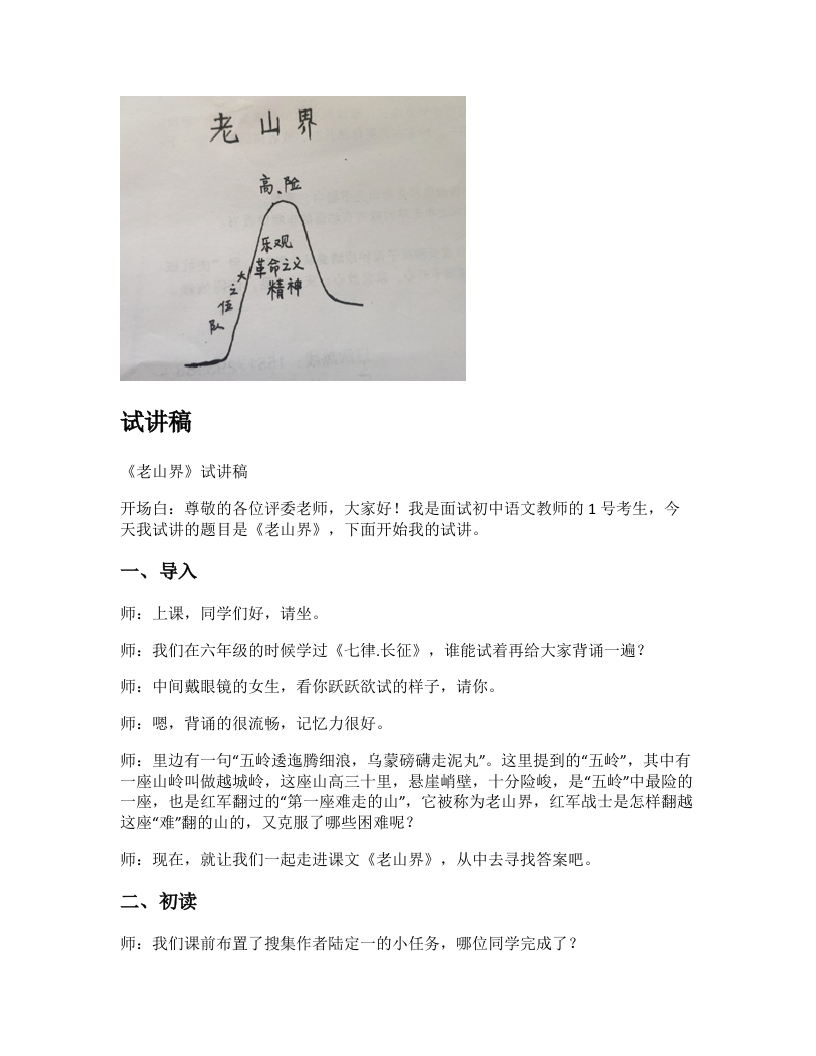 老山界
高、险
乐观
革命之义
精神
队伍之大
试讲稿
《老山界》试讲稿
开场白：尊敬的各位评委老师，大家好！我是面试初中语文教师的 1 号考生，今
天我试讲的题目是《老山界》，下面开始我的试讲。
一、导入
师：上课，同学们好，请坐。
师：我们在六年级的时候学过《七律.长征》，谁能试着再给大家背诵一遍？
师：中间戴眼镜的女生，看你跃跃欲试的样子，请你。
师：嗯，背诵的很流畅，记忆力很好。
师：里边有一句“五岭逶迤腾细浪，乌蒙磅礴走泥丸”。这里提到的“五岭”，其中有
一座山岭叫做越城岭，这座山高三十里，悬崖峭壁，十分险峻，是“五岭”中最险的
一座，也是红军翻过的“第一座难走的山”，它被称为老山界，红军战士是怎样翻越
这座“难”翻的山的，又克服了哪些困难呢？
师：现在，就让我们一起走进课文《老山界》，从中去寻找答案吧。
二、初读
师：我们课前布置了搜集作者陆定一的小任务，哪位同学完成了？